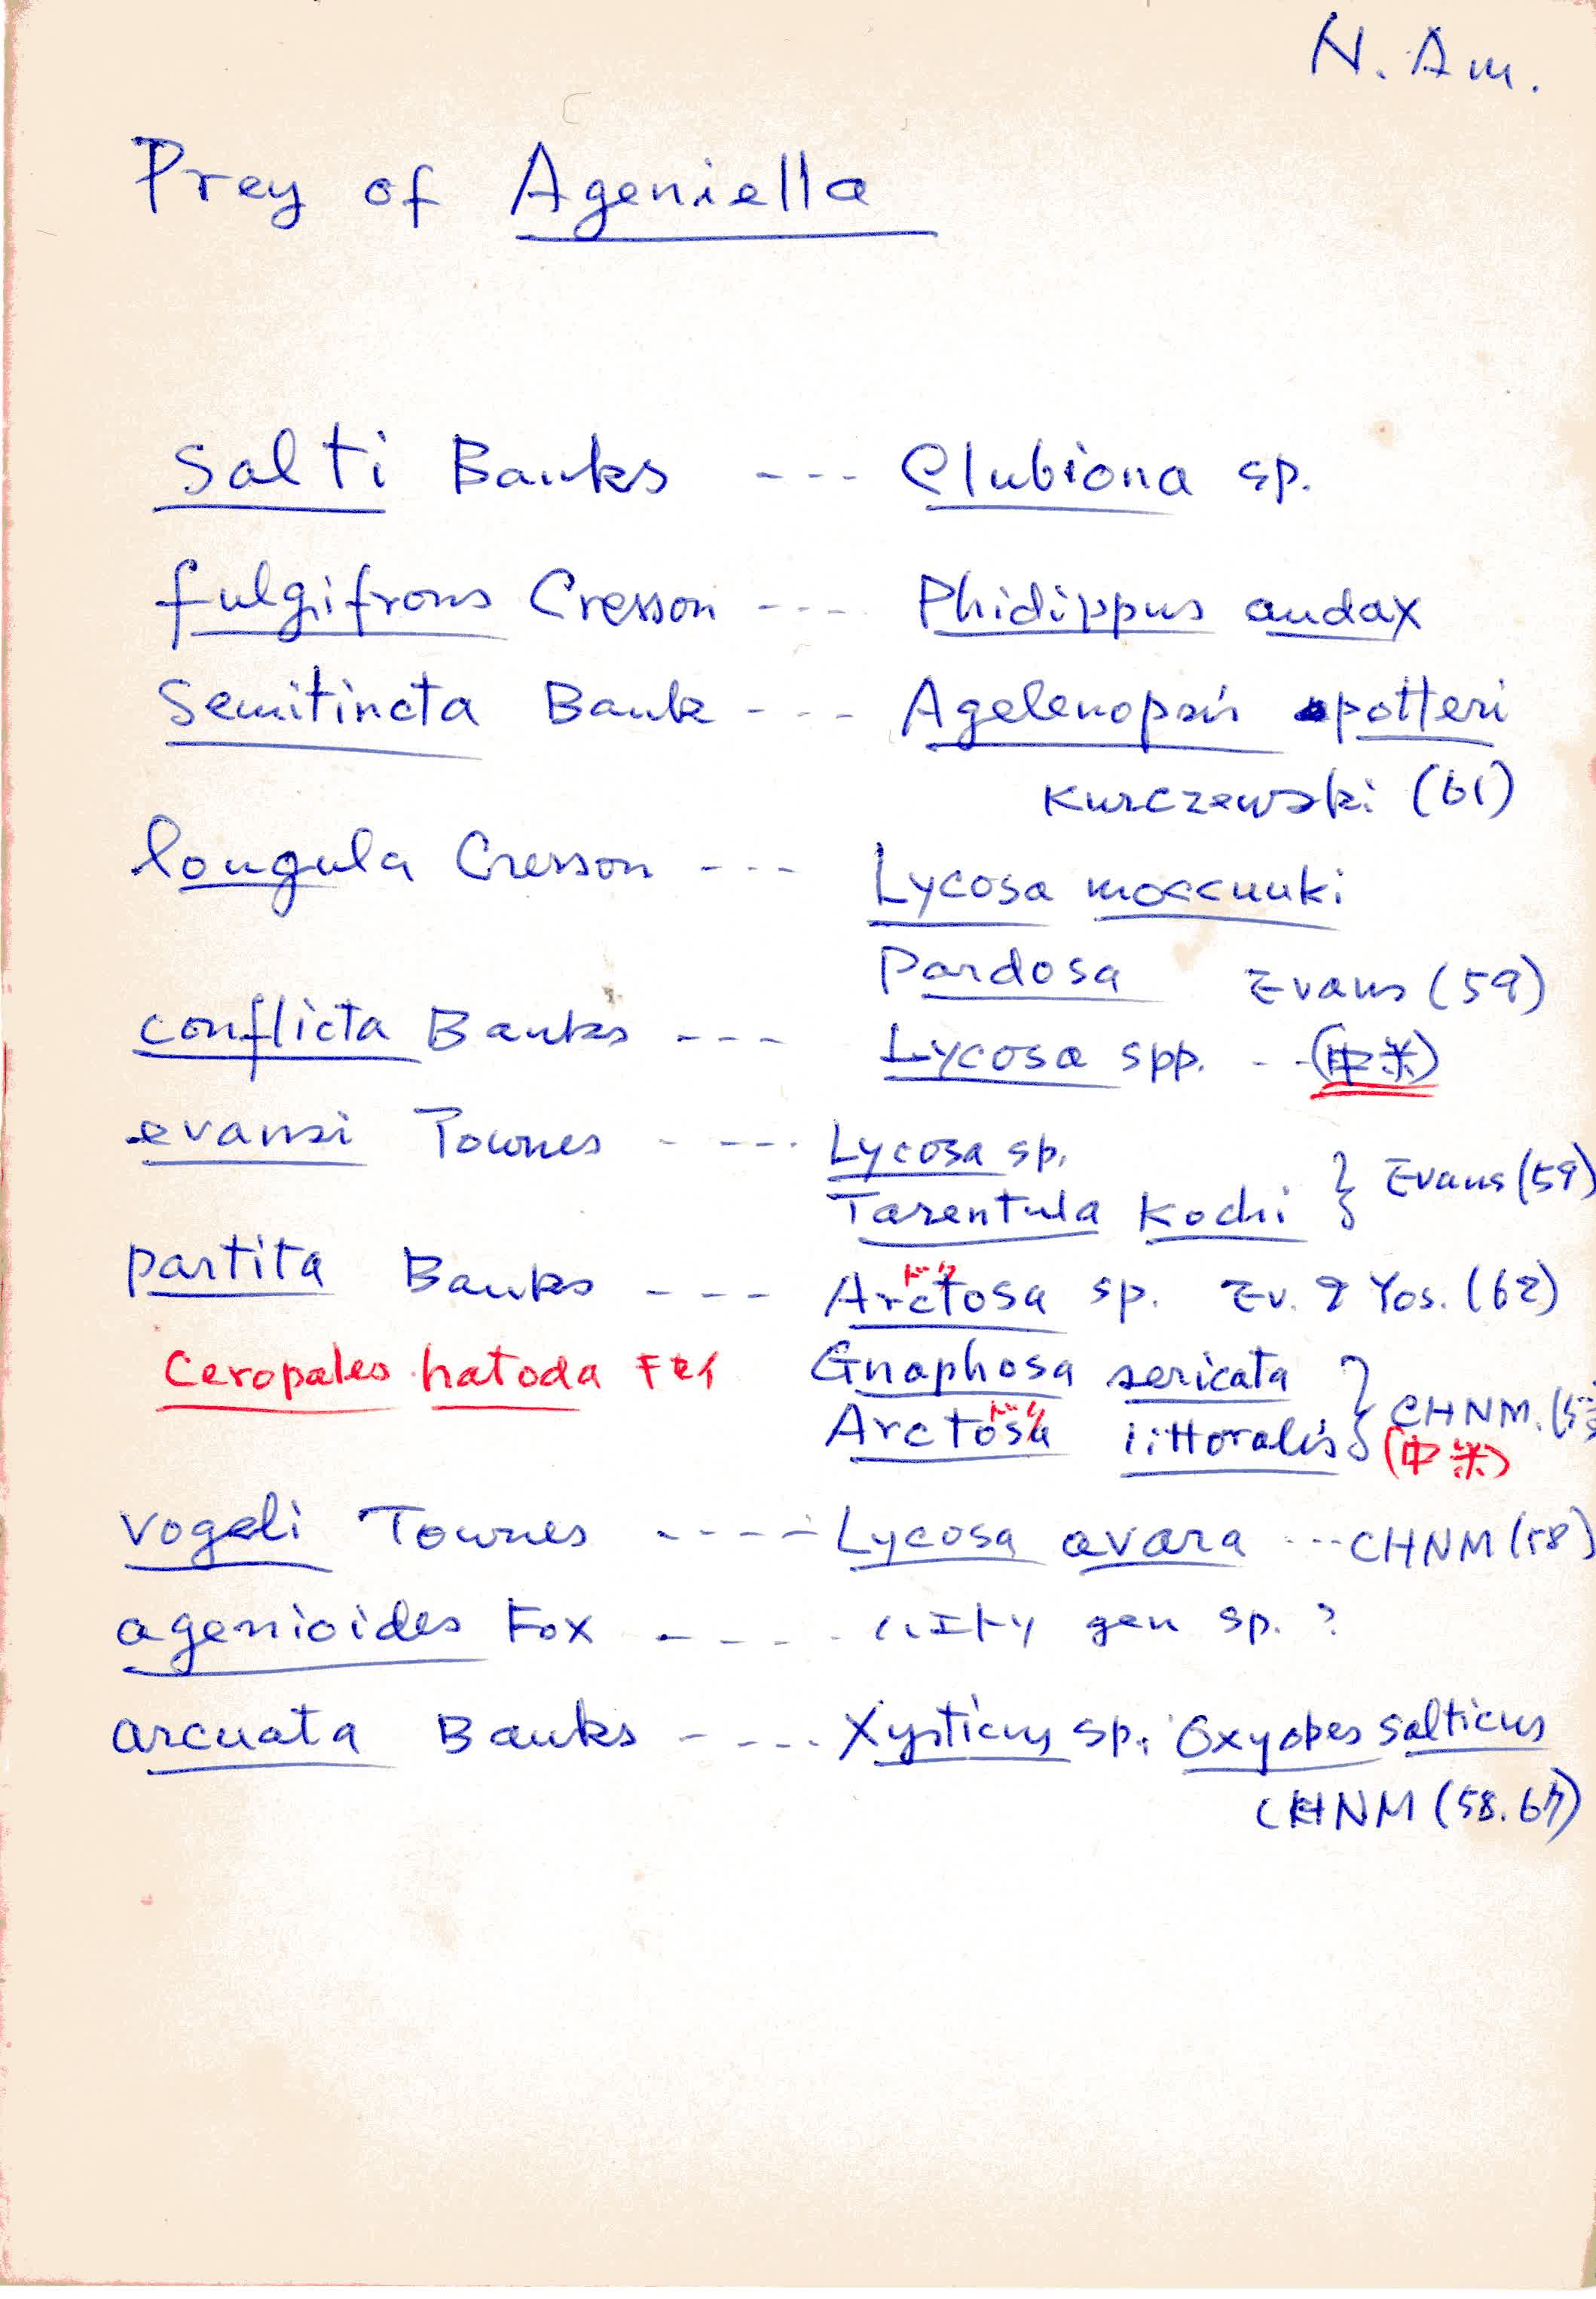 N. Am.
Prey of Ageniella
Salti Banks --- Clubiona sp.
fulgifrons Cresson --- Phidippus audax
Semitincta Bank --- Agelenopsis potteri
Kurczewski (61)
longula Cresson ---
Lycosa moccuuki
Pardosa Evans (59)
conflicta Banks --- Lycosa spp. -- (中米)
evansi Townes ---- Lycosa sp.
Tarentula Kochi } Evans (59)
partita Banks --- Arctosa sp. Ev. & Yos. (62)
Ceropales hatoda Gnaphosa sericata
Arctosa littoralis } CHNM.
(中米)
vogeli Townes ---- Lycosa avara --- CHNM (58)
agenioides Fox ---- gen sp. ?
arcuata Banks ---- Xysticus sp. Oxyopes salticus
CHNM (58.